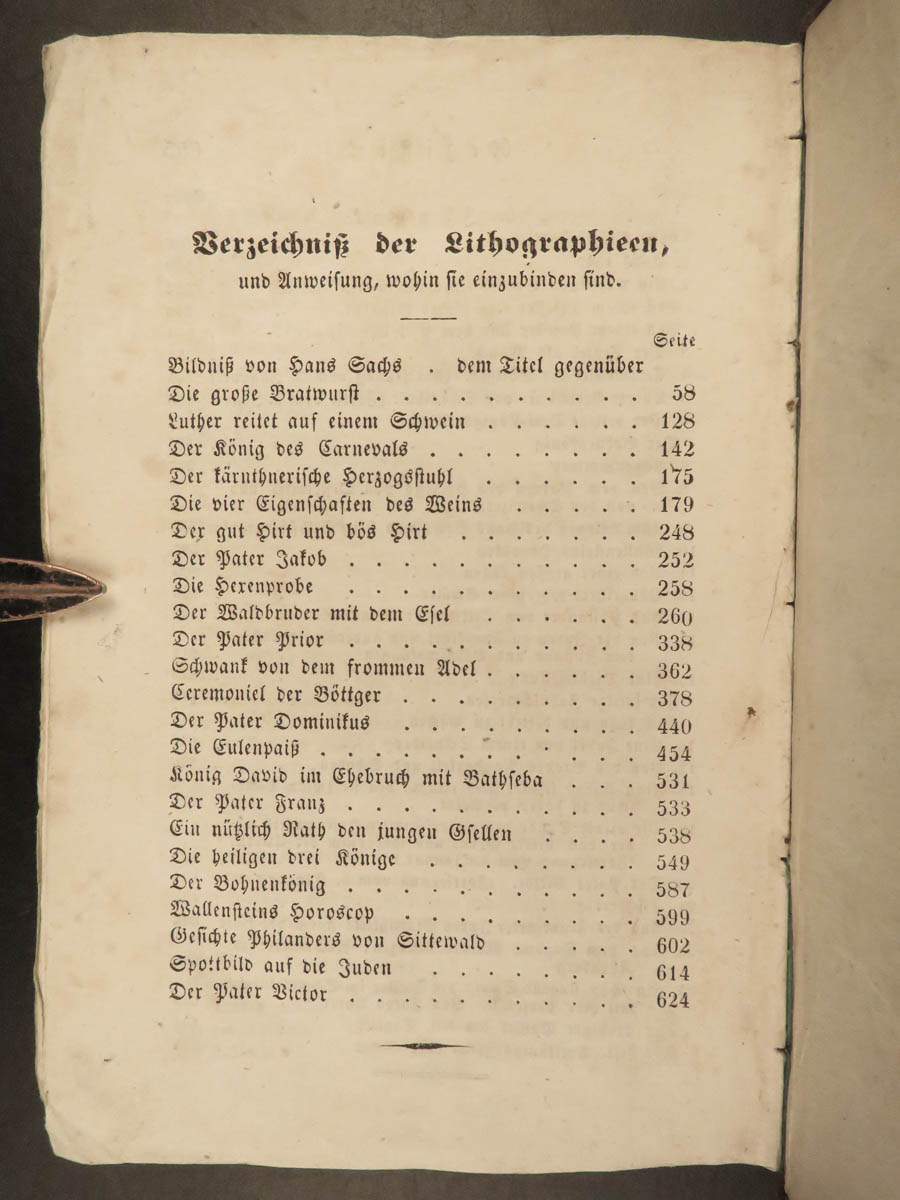 Verzeichniß der Lithographieen,
und Anweisung, wohin sie einzubinden sind.
Seite
Bildniß von Hans Sachs . dem Titel gegenüber
Die große Bratwurst . . . . . . . . . . 58
Luther reitet auf einem Schwein . . . . . . 128
Der König des Carnevals . . . . . . . . 142
Der kärnthnerische Herzogsstuhl . . . . . . 175
Die vier Eigenschaften des Weins . . . . . 179
Der gut Hirt und bös Hirt . . . . . . . 248
Der Pater Jakob . . . . . . . . . . . 252
Die Hexenprobe . . . . . . . . . . . 258
Der Waldbruder mit dem Esel . . . . . . 260
Der Pater Prior . . . . . . . . . . . 338
Schwank von dem frommen Adel . . . . . . 362
Ceremoniel der Böttger . . . . . . . . . 378
Der Pater Dominikus . . . . . . . . . 440
Die Eulenpaiß . . . . . . . . . . . . 454
König David im Ehebruch mit Bathseba . . . 531
Der Pater Franz . . . . . . . . . . . 533
Ein nützlich Rath den jungen Gsellen . . . . 538
Die heiligen drei Könige . . . . . . . . 549
Der Bohnenkönig . . . . . . . . . . . 587
Wallensteins Horoscop . . . . . . . . . 599
Gesichte Philanders von Sittewald . . . . . 602
Spottbild auf die Juden . . . . . . . . 614
Der Pater Victor . . . . . . . . . . . 624